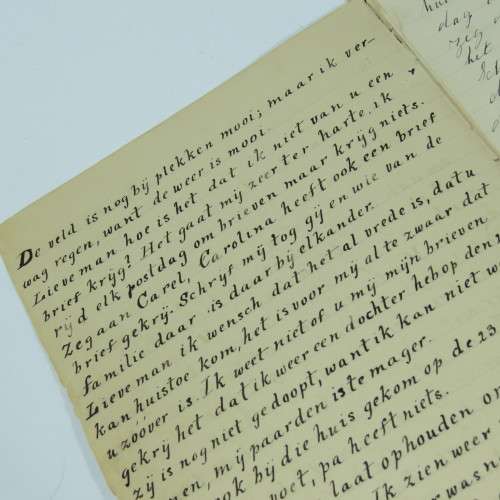 De veld is nog bij plekken mooi; maar ik ver-
wag regen, want de weer is mooi.
Lieve man hoe is het dat ik niet van u een
brief krijg? Het gaat mij zeer ter harte. ik
rijd elk postdag om brieven maar krijg niets.
Zeg aan Carel, Carolina heeft ook een brief
brief gekrij. Schrijf mij tog gij en wie van de
familie daar is daar bij elkander.
Lieve man ik wensch dat het al vrede is, dat u
kan huistoe kom, het is voor mij al te zwaar dat
u zoover is. Ik weet niet of u mij mijn brieven
gekrij het dat ik weer een dochter hebop den
zij is nog niet gedoopt, want ik kan niet w
men, mij paarden is te mager.
ook bij die huis gekom op de 23
voet, pa heeft niets.
laat ophouden
ik zien weer
was n
hu
dag
zeg
het
Sch